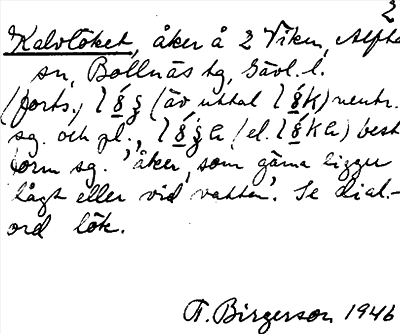 2
Kalvlöket, åker å 2 Viken, Alfta
sn, Bollnäs tg, Gävl. l.
(forts.) l (äv uttal l k) neutr.
sg. och pl., (el. l k) best
form sg. 'åker, som gärna ligger
lågt eller vid vatten'. Se dial.-
ord lök.
F. Birgerson 1946